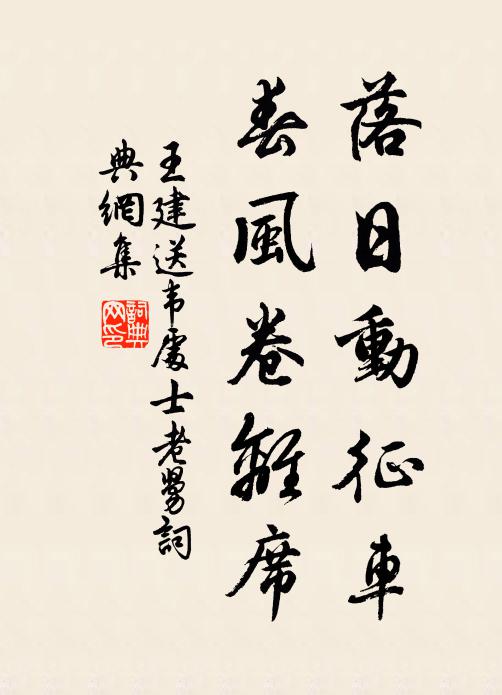 落日動征車
春風卷離席
王建送韦處士老舅詞
典網集
詞典
网印